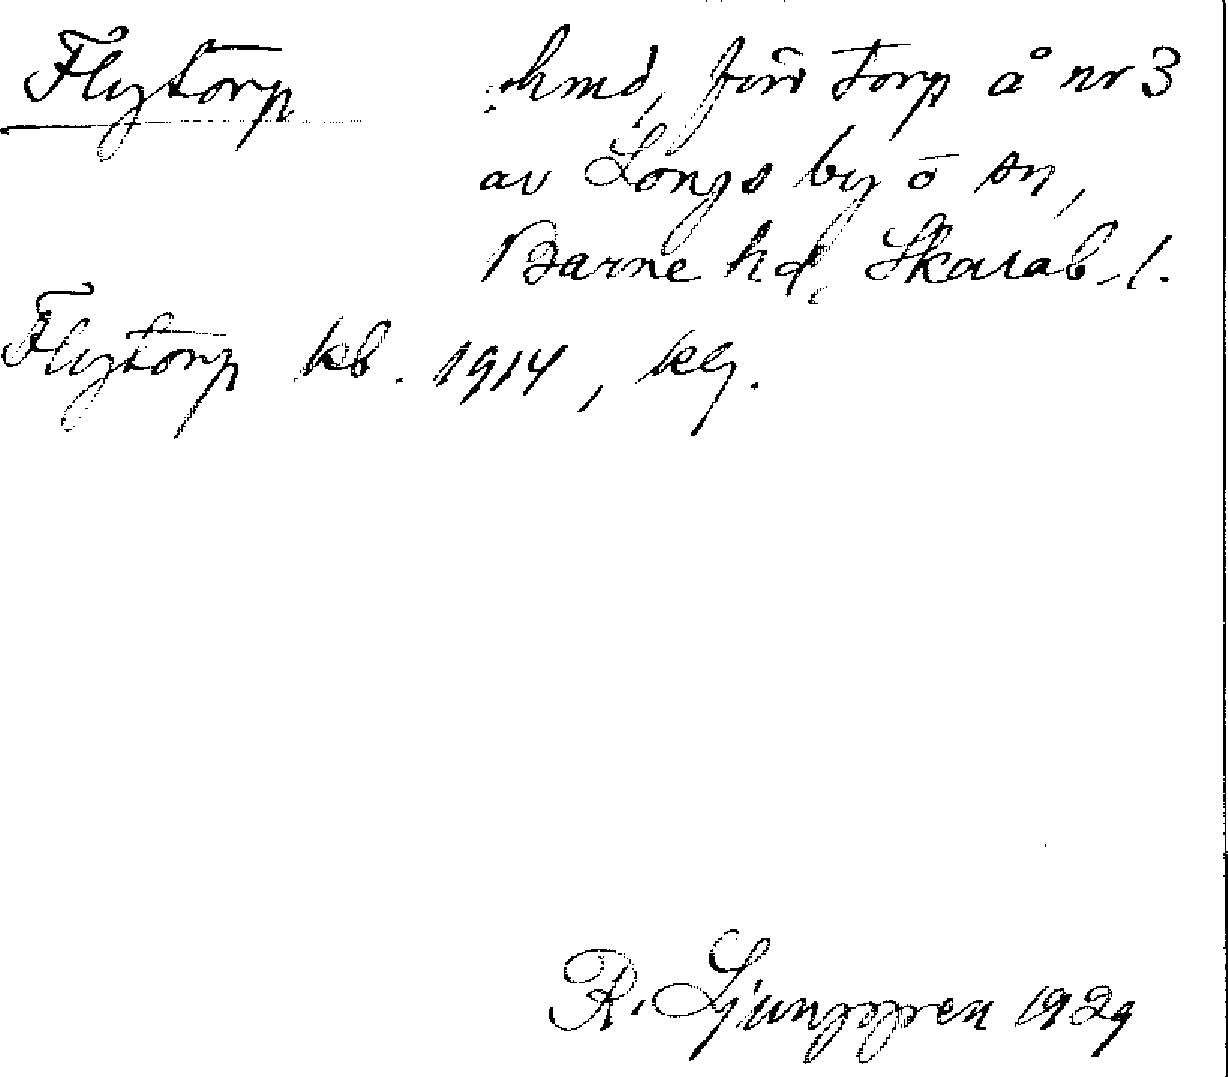 Flytorp hmd, förr torp å nr 3
av Longs by o sn,
Barne hd, Skarab. l.
Flytorp kb. 1914, kg.
R. Ljunggren 1929